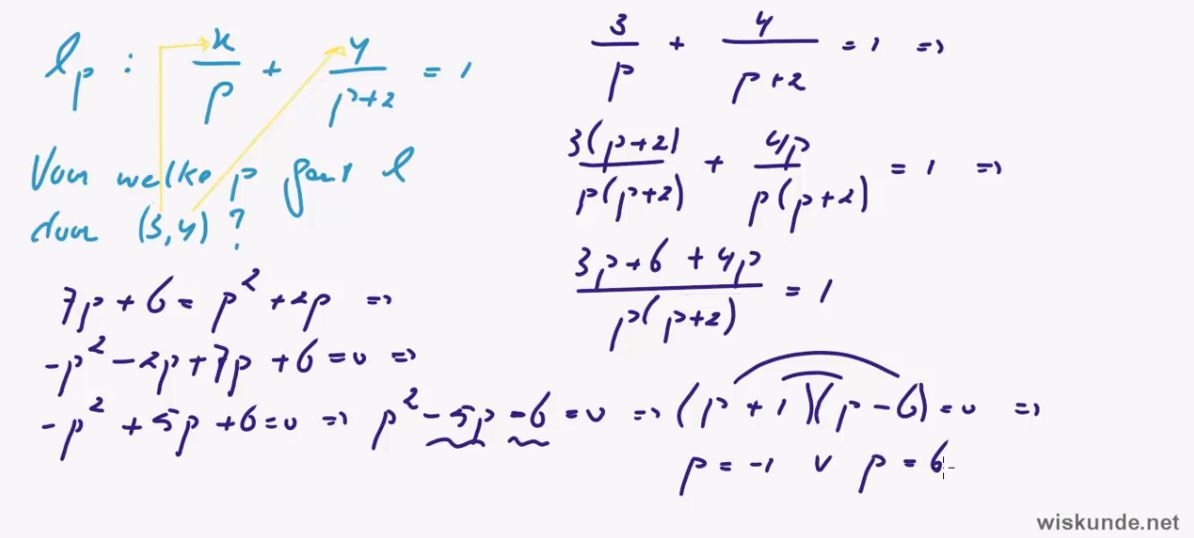 lₚ : x/p + y/(p+2) = 1
Voor welke p gaat l
door (3,4) ?
3/p + 4/(p+2) = 1 =>
3(p+2)/p(p+2) + 4p/p(p+2) = 1 =>
(3p+6 + 4p)/p(p+2) = 1
7p + 6 = p² + 2p =>
-p² - 2p + 7p + 6 = 0 =>
-p² + 5p + 6 = 0 => p² - 5p - 6 = 0 => (p + 1)(p - 6) = 0 =>
p = -1 v p = 6
wiskunde.net